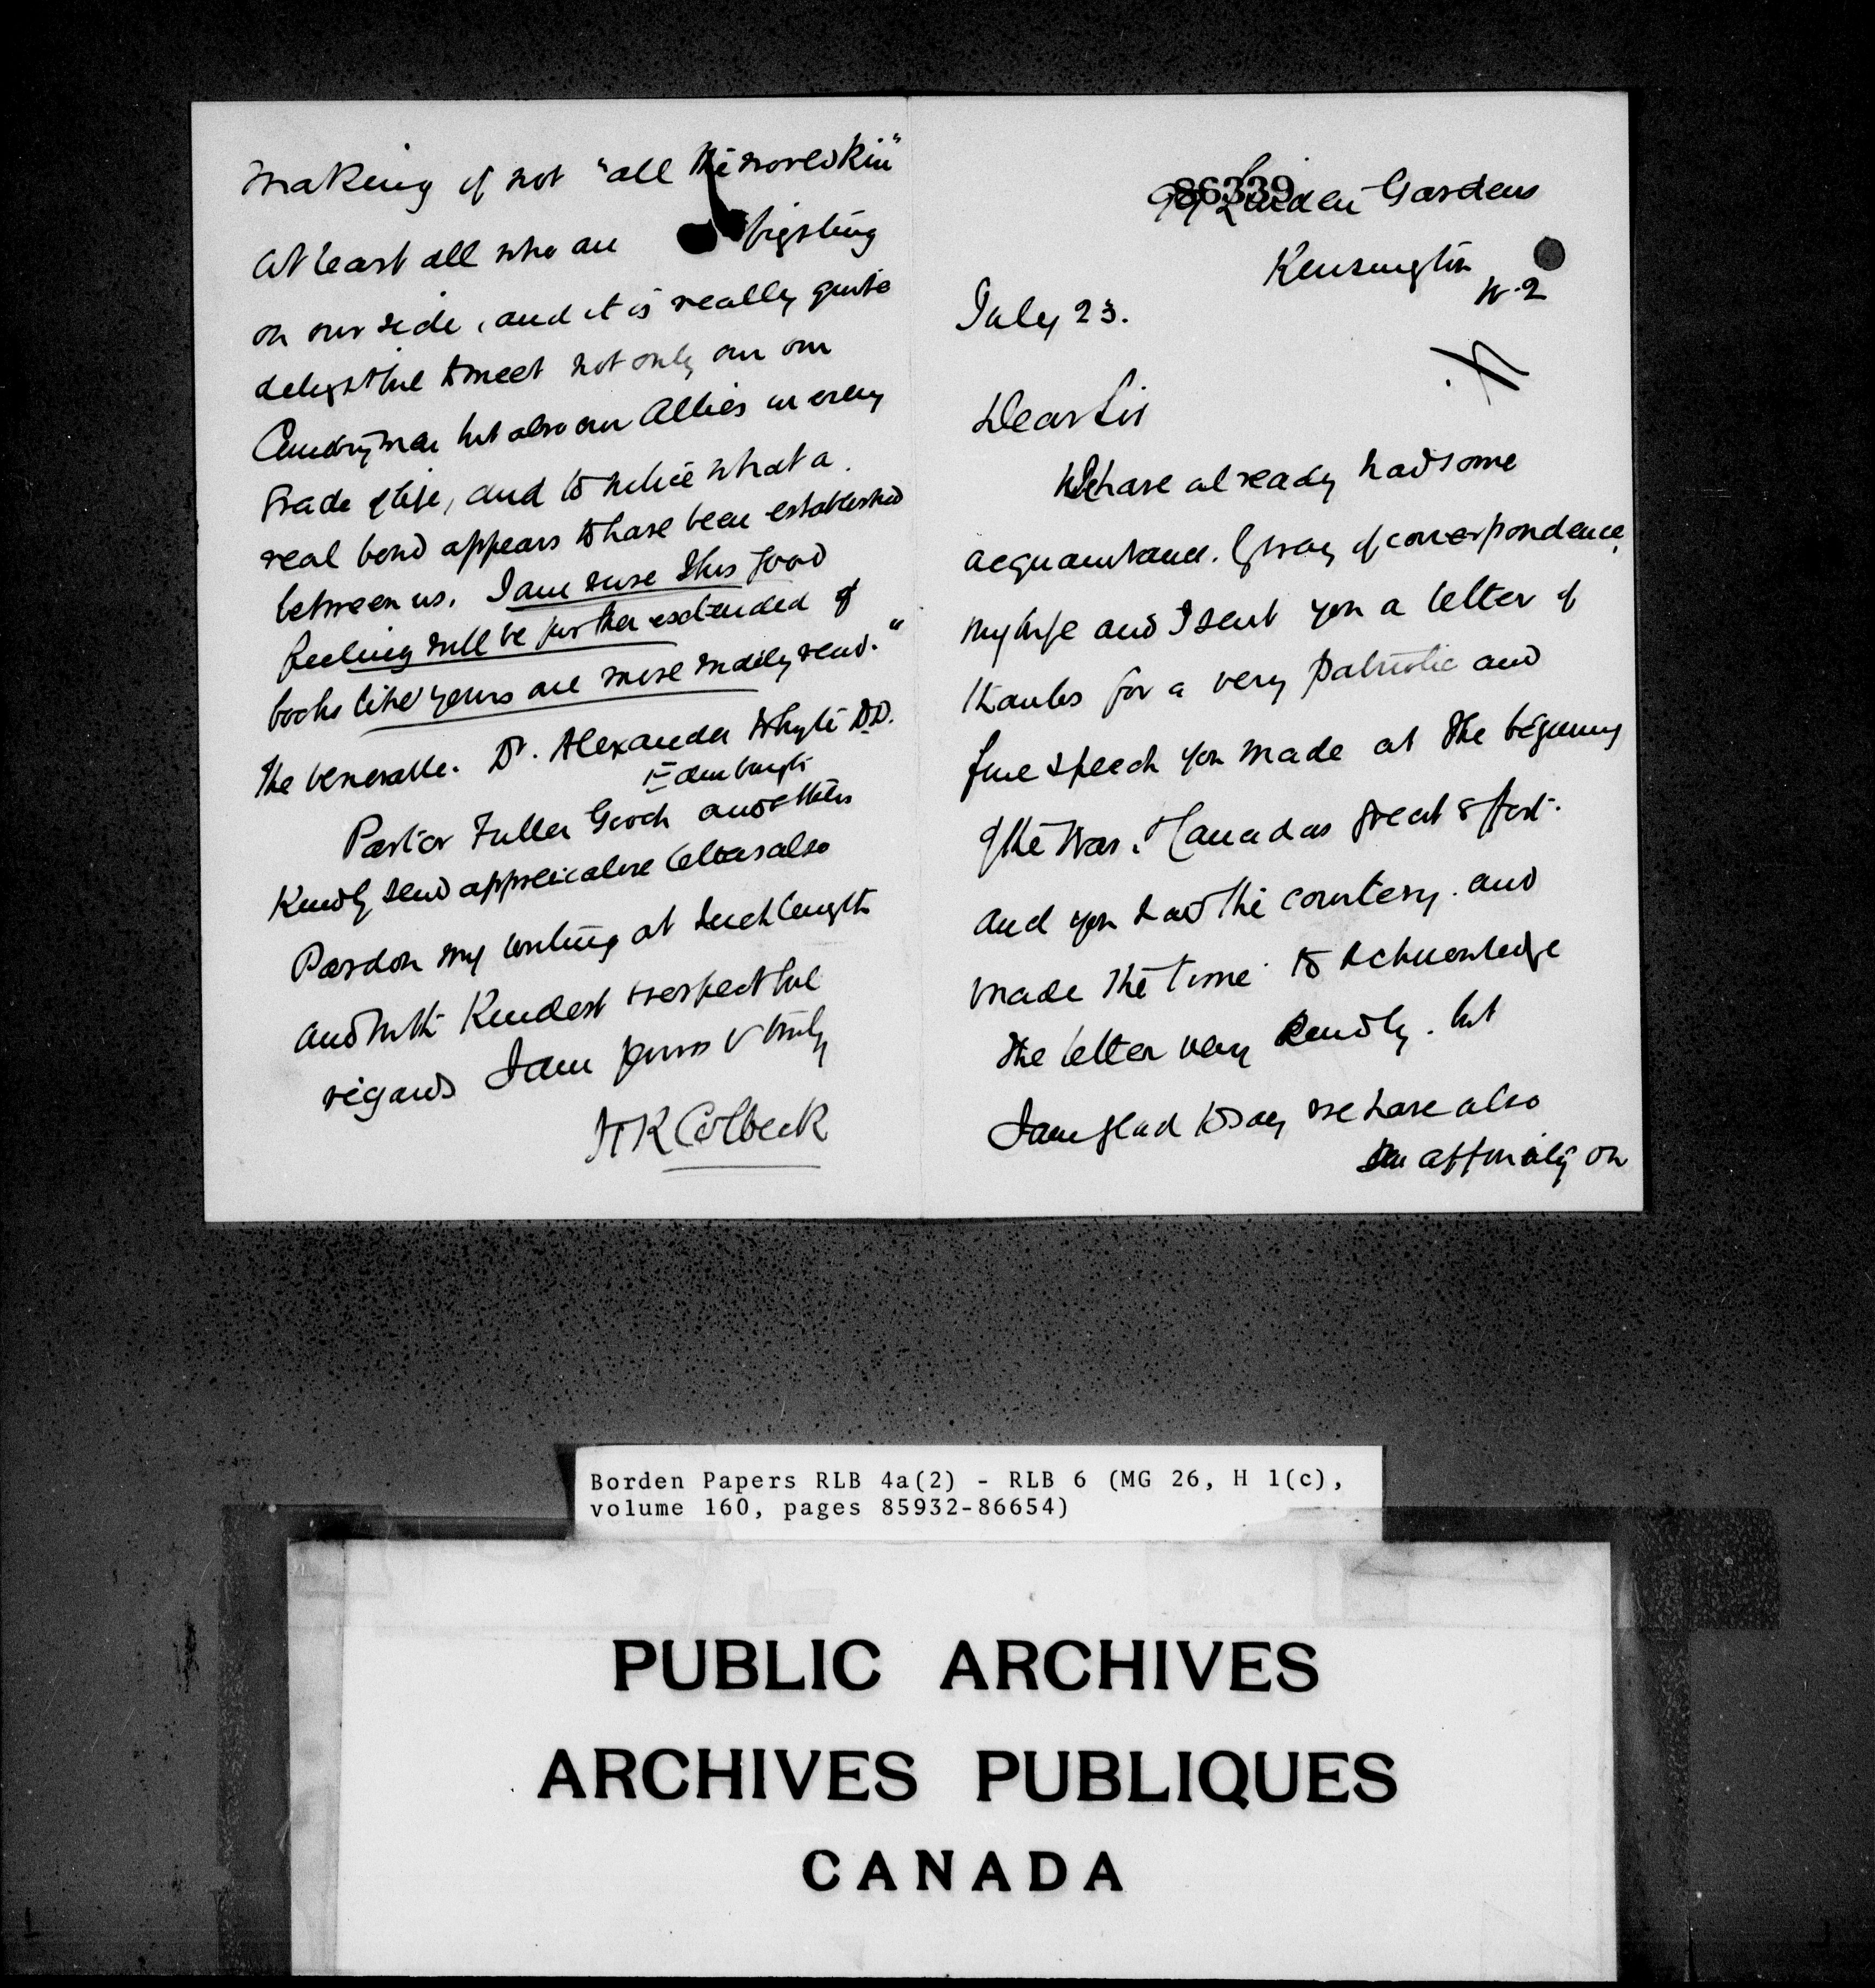 making if not "all the world kin"
at least all who are fighting
on our side, and it is really quite
delightful to meet not only our own
Countrymen but also our Allies in every
grade of life, and to notice what a
real bond appears to have been established
between us. I am sure this good
feeling will be further extended if
books like yours are more readily read."
The venerable Dr. Alexander Whyte DD.
Edinburgh
Pastor Fuller Gooch and others
Kindly send appreciative letters also
Pardon my writing at such length
and with Kindest & respectful
regards I am yours v truly
W K Colbeck
86339
Linden Gardens
Kensington
W.2
July 23.
Dear Sir
We have already had some
acquaintance. by way of correspondence,
my wife and I sent you a letter of
thanks for a very patriotic and
fine speech you made at the begining
of the War. & Canadas great effort.
and you had the courtesy. and
made the time to acknowledge
the letter very kindly. but
I am glad to say we have also
an affinity on
Borden Papers RLB 4a(2) - RLB 6 (MG 26, H 1(c),
volume 160, pages 85932-86654)
PUBLIC ARCHIVES
ARCHIVES PUBLIQUES
CANADA